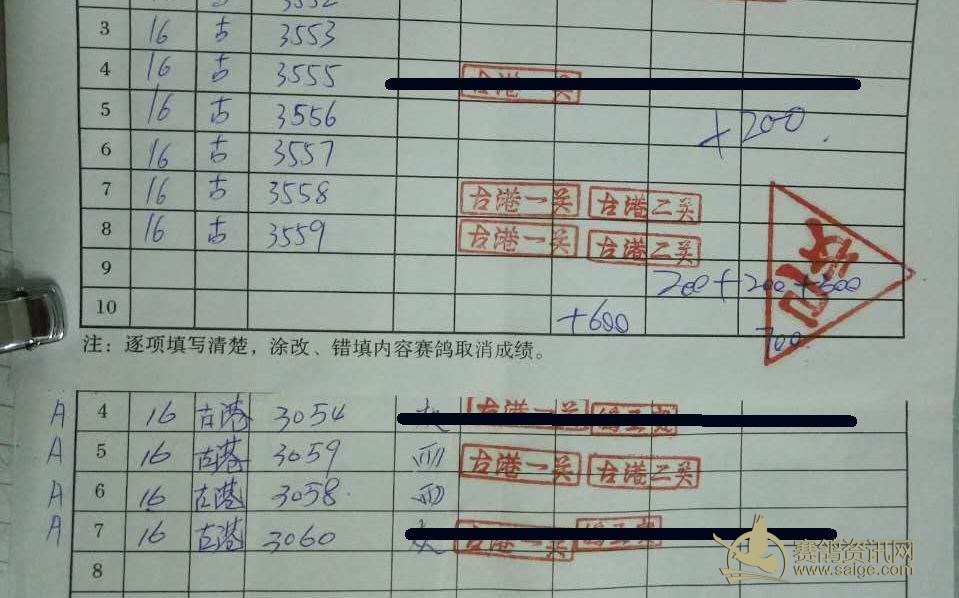 3552
3 16 古 3553
4 16 古 3555 古港一关
5 16 古 3556
+200
6 16 古 3557
7 16 古 3558 古港一关 古港二关
8 16 古 3559 古港一关 古港二关
9
200+200+300
10 +600 700
注:逐项填写清楚,涂改、错填内容赛鸽取消成绩。
A 4 16 古港 3054 古港一关
A 5 16 古港 3059 古港一关 古港二关
A 6 16 古港 3058
A 7 16 古港 3060 古港一关
8
赛鸽资讯网
www.saige.com